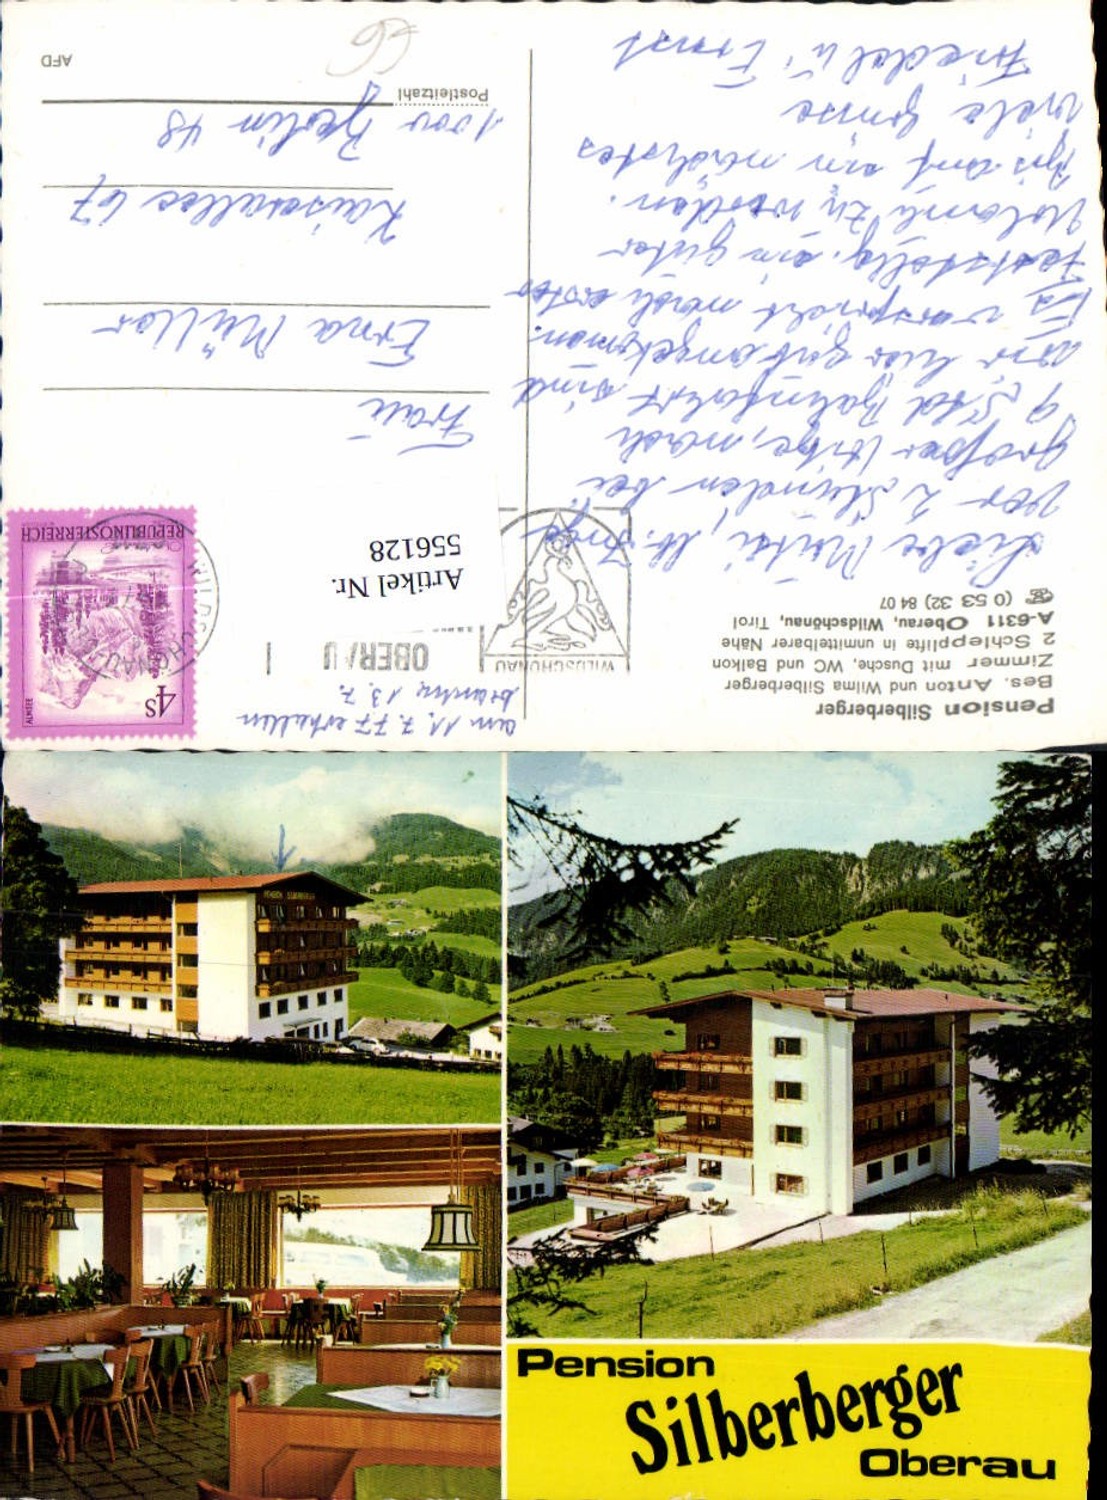 Pension Silberberger
Bes. Anton und Wilma Silberberger
Zimmer mit Dusche, WC und Balkon
2 Schlepplifte in unmittelbarer Nähe
A-6311 Oberau, Wildschönau, Tirol
☎ (0 53 32) 84 07
Liebe Mutti, lb. Inge
Vor 2 Stunden bei
großer Hitze, nach
9 Std Bahnfahrt sind
wir hier gut angekommen.
Es verspricht nach erster
Feststellg. ein guter
Urlaub zu werden.
Bis auf ein nächstes
viele Grüsse
Friedel u. Ernst
am 11.7.77 erhalten
13.7.
WILDSCHÖNAU
OBERAU
WILDSCHÖNAU
4S
ALMSEE
REPUBLIK ÖSTERREICH
Artikel Nr.
556128
Frau
Erna Müller
Kaiserallee 67
1000 Berlin 48
Postleitzahl
AFD
PENSION SILBERBERGER
Pension
Silberberger
Oberau